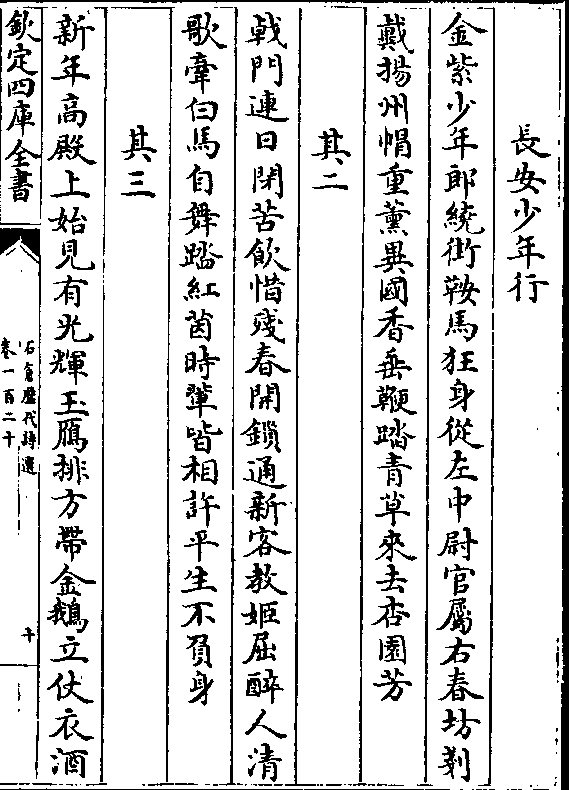 長安少年行
金紫少年郎繞街鞍馬狂身從左中尉官屬右春坊剗
戴揚州帽重薫異國香垂鞭踏青草來去杏園芳
其二
㦸門連日閉苦飲惜殘春開鎖通新客教姬屈醉人清
歌牽白馬自舞踏紅茵時輩皆相許平生不負身
其三
新年高殿上始見有光輝玉鴈排方帶金鵝立仗衣酒
欽定四庫全書
石倉歴代詩選
卷一百二十
十